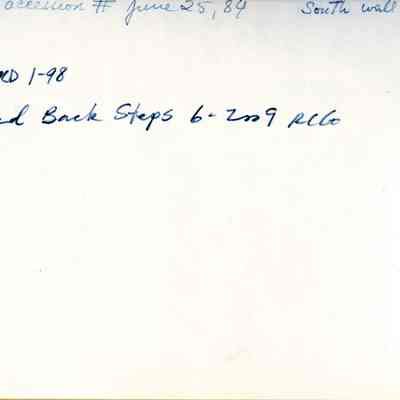 accession # June 25, 84 South wall
1-98
Back Steps 6-2009